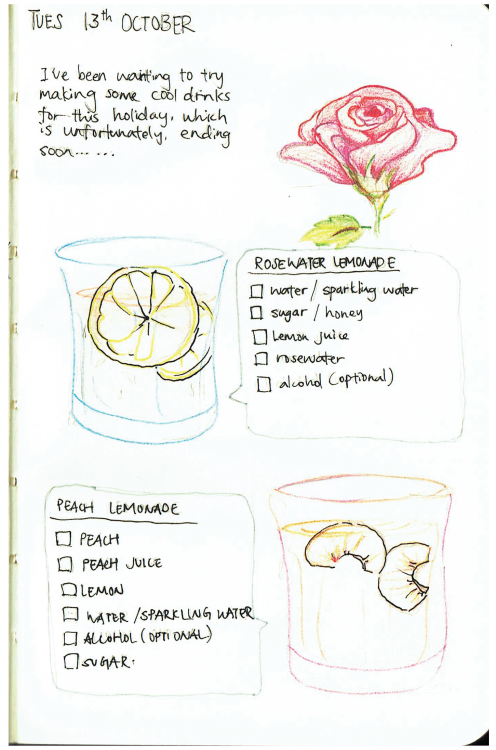 TUES 13th OCTOBER
I've been wanting to try
making some cool drinks
for this holiday, which
is unfortunately, ending
soon... ...
ROSEWATER LEMONADE
water / sparkling water
sugar / honey
Lemon juice
rosewater
alcohol (optional)
PEACH LEMONADE
PEACH
PEACH JUICE
LEMON
WATER /SPARKLING WATER
ALCOHOL (OPTIONAL)
SUGAR.